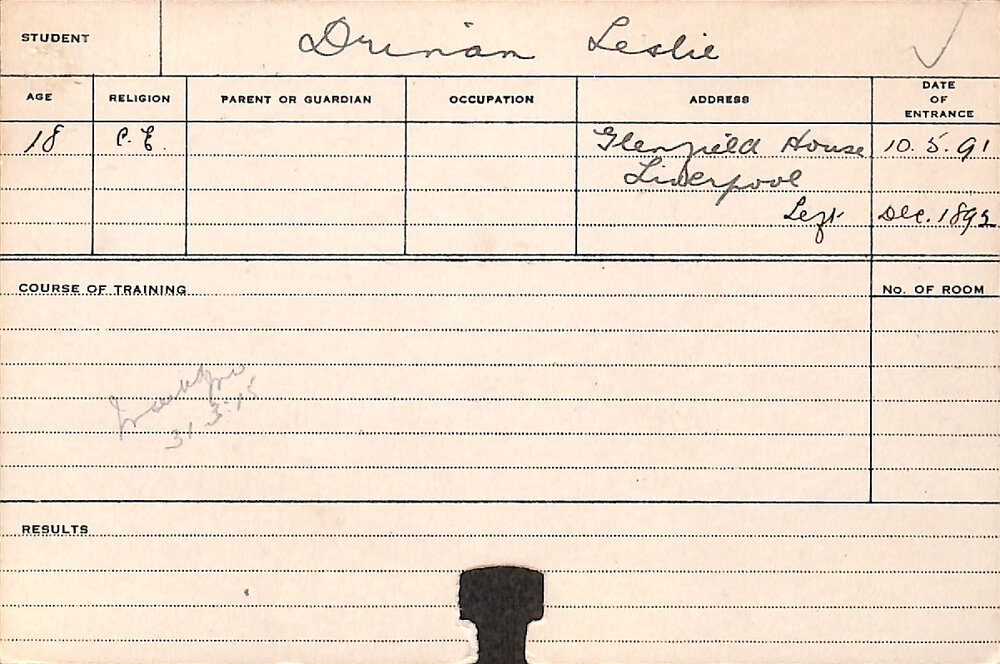 STUDENT Drinan Leslie
AGE RELIGION PARENT OR GUARDIAN OCCUPATION ADDRESS DATE OF ENTRANCE
18 C. E. Glenfield House 10. 5. 91
Liverpool
Left Dec. 1892
COURSE OF TRAINING No. OF ROOM
31. 3. 15
RESULTS